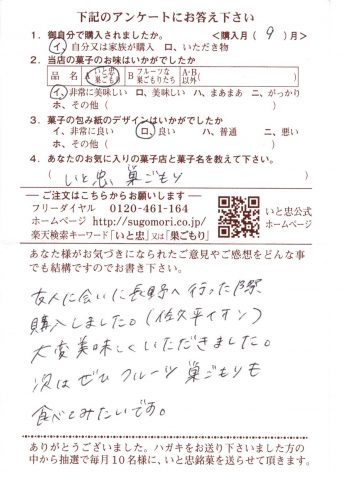 下記のアンケートにお答え下さい
1．御自分で購入されましたか。 ＜購入月（ 9 ）月＞
イ、自分又は家族が購入 ロ、いただき物
2．当店の菓子のお味はいかがでしたか
品 名 A いと忠巣ごもり B フルーツな巣ごもりたち A・B以外（ ）
イ、非常に美味しい ロ、美味しい ハ、まあまあ ニ、がっかり
ホ、その他（ ）
3．菓子の包み紙のデザインはいかがでしたか
イ、非常に良い ロ、良い ハ、普通 ニ、悪い
ホ、その他（ ）
4．あなたのお気に入りの菓子店と菓子名を教えて下さい。
（ いと忠 巣ごもり ）
ご注文はこちらからお願いします
フリーダイヤル 0120-461-164
ホームページ http://sugomori.co.jp/
楽天検索キーワード「いと忠」又は「巣ごもり」
いと忠公式
ホームページ
あなた様がお気づきになられたご意見やご感想をどんな事
でも結構ですのでお書き下さい。
友人に会いに長野へ行った際
購入しました。（佐久平イオン）
大変美味しくいただきました。
次はぜひフルーツ巣ごもりも
食べてみたいです。
ありがとうございました。ハガキをお送り下さいました方の
中から抽選で毎月10名様に、いと忠銘菓を送らせて頂きます。